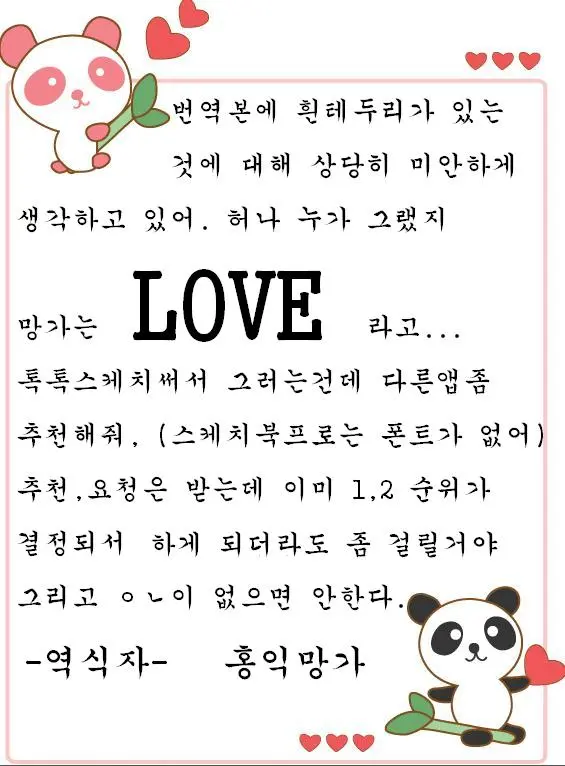 번역본에 흰테두리가 있는
것에 대해 상당히 미안하게
생각하고 있어. 허나 누가 그랬지
망가는 LOVE 라고...
톡톡스케치써서 그러는건데 다른앱좀
추천해줘, (스케치북프로는 폰트가 없어)
추천,요청은 받는데 이미 1,2 순위가
결정되서 하게 되더라도 좀 걸릴거야
그리고 ㅇㄴ이 없으면 안한다.
-역식자- 홍익망가